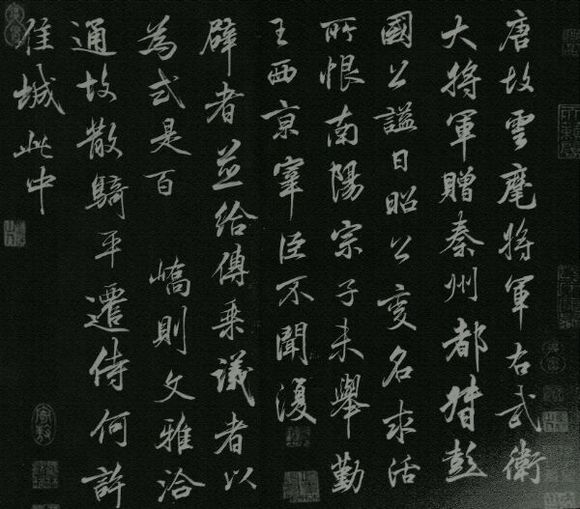 唐故雲麾將軍右武衛
大將軍贈秦州都督彭
國公謚曰昭公變名求活
所恨南陽宗子未舉勤
王西京宰臣不聞復
辟者並給傳乘議者以
為式是百 嶠則文雅洽
通故散騎平遷侍何許
維城此中